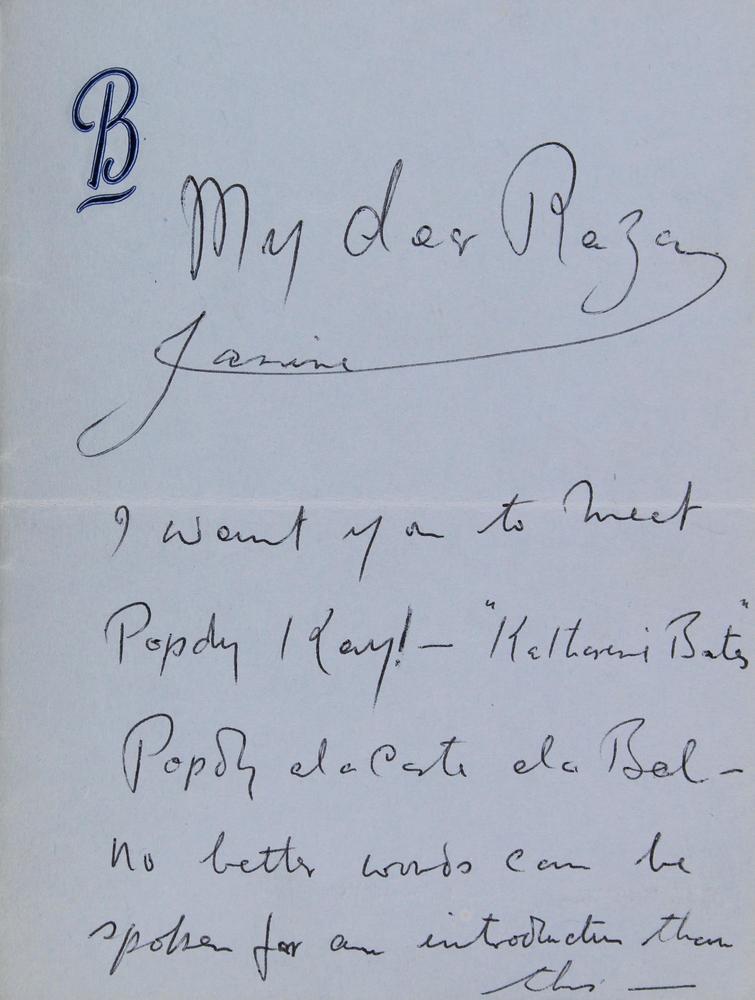 B
My dear Raza
Janine
I want you to meet
Popdy Kay! — "Katharine Bates"
Popdy elaCarte ela Bel –
no better words can be
spoken for an introduction than
this —